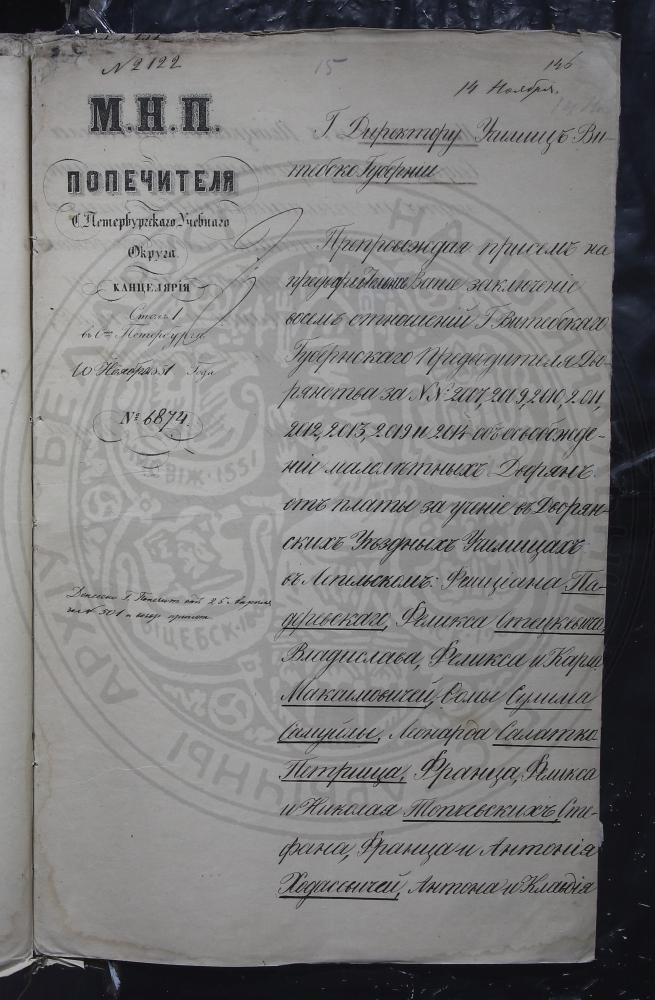 № 2122
15
146
14 Ноября.
М.Н.П.
ПОПЕЧИТЕЛЯ
С. Петербургскаго Учебнаго
Округа.
КАНЦЕЛЯРІЯ
Столъ 1
въ С. Петербургѣ
10 Ноября 51 Года
№ 6874.
Г Директору Училищъ Ви-
тебско Губерніи
Препровождая присемъ на
Ваше заключеніе
восемь отношеній Г Витебскаго
Губернскаго Предводителя Дво-
рянства за №№ 2007, 2009, 2010, 2011,
2012, 2013, 2019 и 2014 объ освобожде-
ніи малолѣтныхъ Дворянъ
отъ платы за ученіе въ Дворян-
скихъ Уѣздныхъ Училищахъ
въ Лепельскомъ: Фелиціана Па-
деревскаго, Феликса Стацкевича,
Владислава, Феликса и Карла
Максимовичей, Сомы Сулима
Самуйлы, Леонарда Салатко
Петрища, Франца, Феликса
и Николая Топчевскихъ, Сте-
фана, Франца и Антонія
Ходасевичей, Антона и Клавдія
Донесено Г. Попечит. отъ 25 Апрѣля
за № 501
АРХІЎ
ВІЦЕБСК